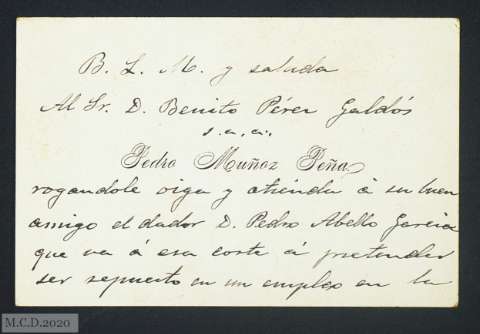 B. L. M. y saluda
Al Sr. D. Benito Pérez Galdós
s. a. a.
Pedro Muñoz Peña
rogandole oiga y atienda á su buen
amigo el dador D. Pedro Abello Garcia
que va á esa corte á pretender
ser repuesto en un empleo en la
M.C.D.2020